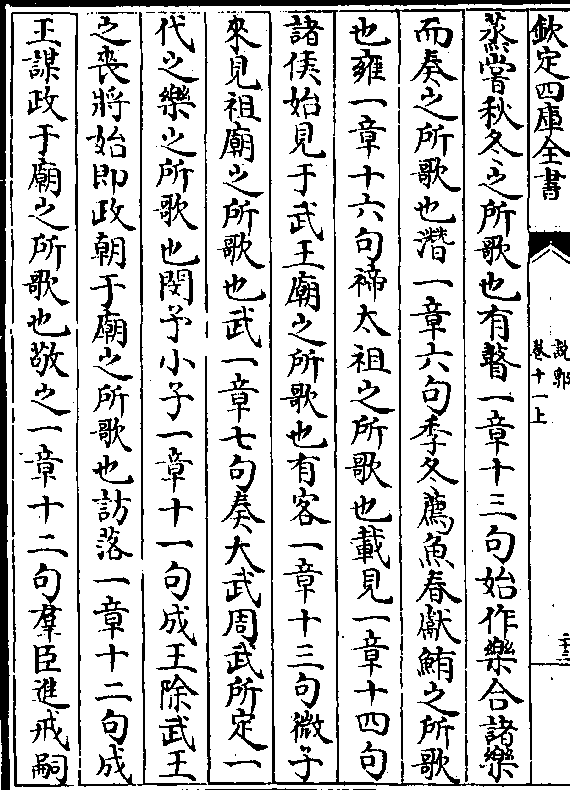 欽定四庫全書
說郛
卷十一上
蒸嘗秋冬之所歌也有瞽一章十三句始作樂合諸樂
而奏之所歌也潛一章六句季冬薦魚春獻鮪之所歌
也雍一章十六句禘太祖之所歌也載見一章十四句
諸侯始見于武王廟之所歌也有客一章十三句微子
來見祖廟之所歌也武一章七句奏大武周武所定一
代之樂之所歌也閔予小子一章十一句成王除武王
之喪將始即政朝于廟之所歌也訪落一章十二句成
王謀政于廟之所歌也敬之一章十二句羣臣進戒嗣